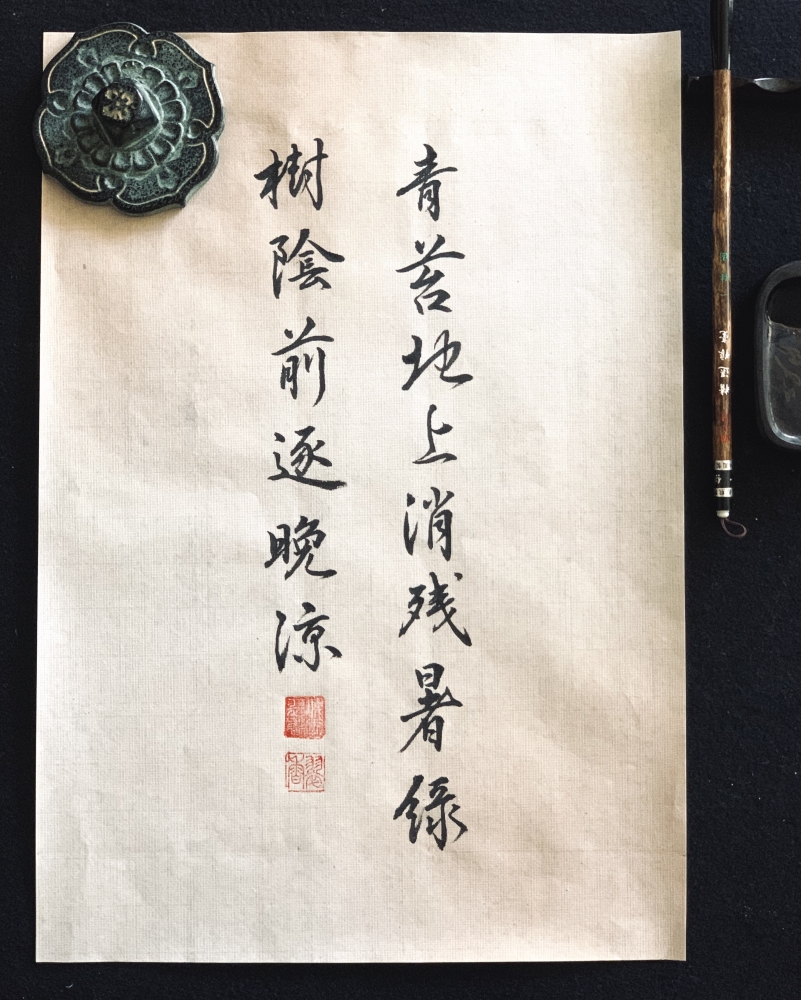 青苔地上消残暑緑
樹陰前逐晚涼